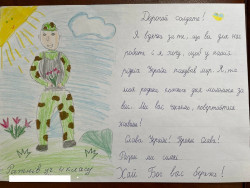 Дорогий солдате!
Я вдячна за те, що ви для нас
робите і я хочу, щоб у нашій
рідній Україні панував мир. Я та
моя родина кожен день молимося за
вас. Ми вас чекаємо, повертайтеся
живими!
Слава Україні! Героям Слава!
Разом ми сила!
Хай Бог вас береже!